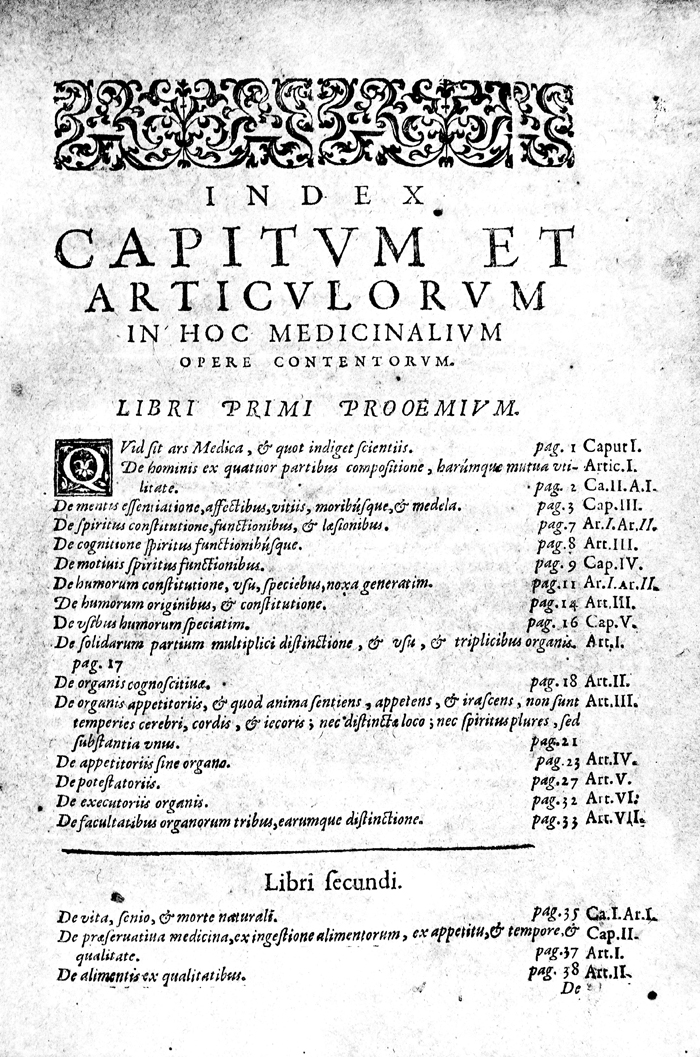 INDEX
CAPITVM ET
ARTICVLORVM
IN HOC MEDICINALIVM
OPERE CONTENTORVM.
LIBRI PRIMI PROOEMIVM.
QVid sit ars Medica, & quot indiget scientiis. pag. 1 Caput I.
De hominis ex quatuor partibus compositione, harúmque mutua vti- Artic. I.
litate. pag. 2 Ca. II. A. I.
De mentis essentiatione, affectibus, vitiis, moribúsque, & medela. pag. 3 Cap. III.
De spiritus constitutione, functionibus, & læsionibus. pag. 7 Ar. I. Ar. II.
De cognitione spiritus functionibúsque. pag. 8 Art. III.
De motiuis spiritus functionibus. pag. 9 Cap. IV.
De humorum constitutione, vsu, speciebus, noxa generatim. pag. 11 Ar. I. Ar. II.
De humorum originibus, & constitutione. pag. 14 Art. III.
De vsibus humorum speciatim. pag. 16 Cap. V.
De solidarum partium multiplici distinctione, & vsu, & triplicibus organis. Art. I.
pag. 17
De organis cognoscitiuæ. pag. 18 Art. II.
De organis appetitoriis, & quod anima sentiens, appetens, & irascens, non sunt Art. III.
temperies cerebri, cordis, & iecoris; nec distincta loco; nec spiritus plures, sed
substantia vnus. pag. 21
De appetitoriis sine organo. pag. 23 Art. IV.
De potestatoriis. pag. 27 Art. V.
De executoriis organis. pag. 32 Art. VI.
De facultatibus organorum tribus, earumque distinctione. pag. 33 Art. VII.
Libri secundi.
De vita, senio, & morte naturali. pag. 35 Ca. I. Ar. I.
De præseruatiua medicina, ex ingestione alimentorum, ex appetitu, & tempore, & Cap. II.
qualitate. pag. 37 Art. I.
De alimentis ex qualitatibus. pag. 38 Art. II.
De